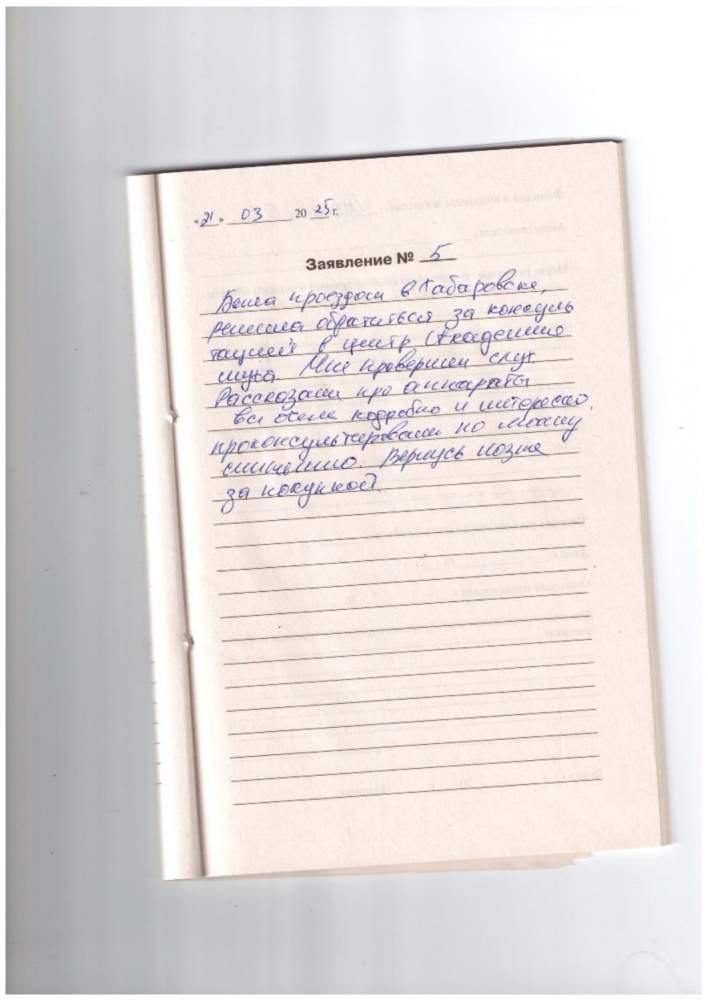 «21» 03 2025 г.
Заявление № 5
Была проездом в Хабаровске,
решила обратиться за консуль
тацией в центр Академию
слуха. Мне проверили слух
Рассказали про аппараты
все очень подробно и интересно.
проконсультировали по моему
снижению. Вернусь позже
за покупкой.